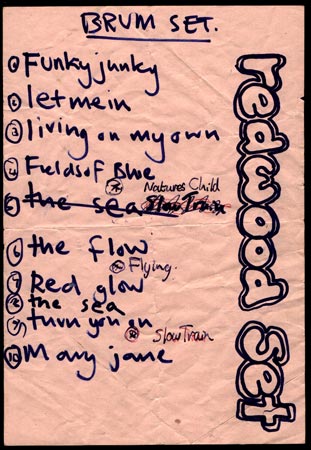 BRUM SET.
① Funky junky
② let me in
③ living on my own
④ Fields of Blue
Natures Child
⑤ the sea Slow Train
⑥ the flow
Flying.
Red glow
⑧ the sea
⑨ turn you on
Slow Train
⑩ Mary jane
redwood set